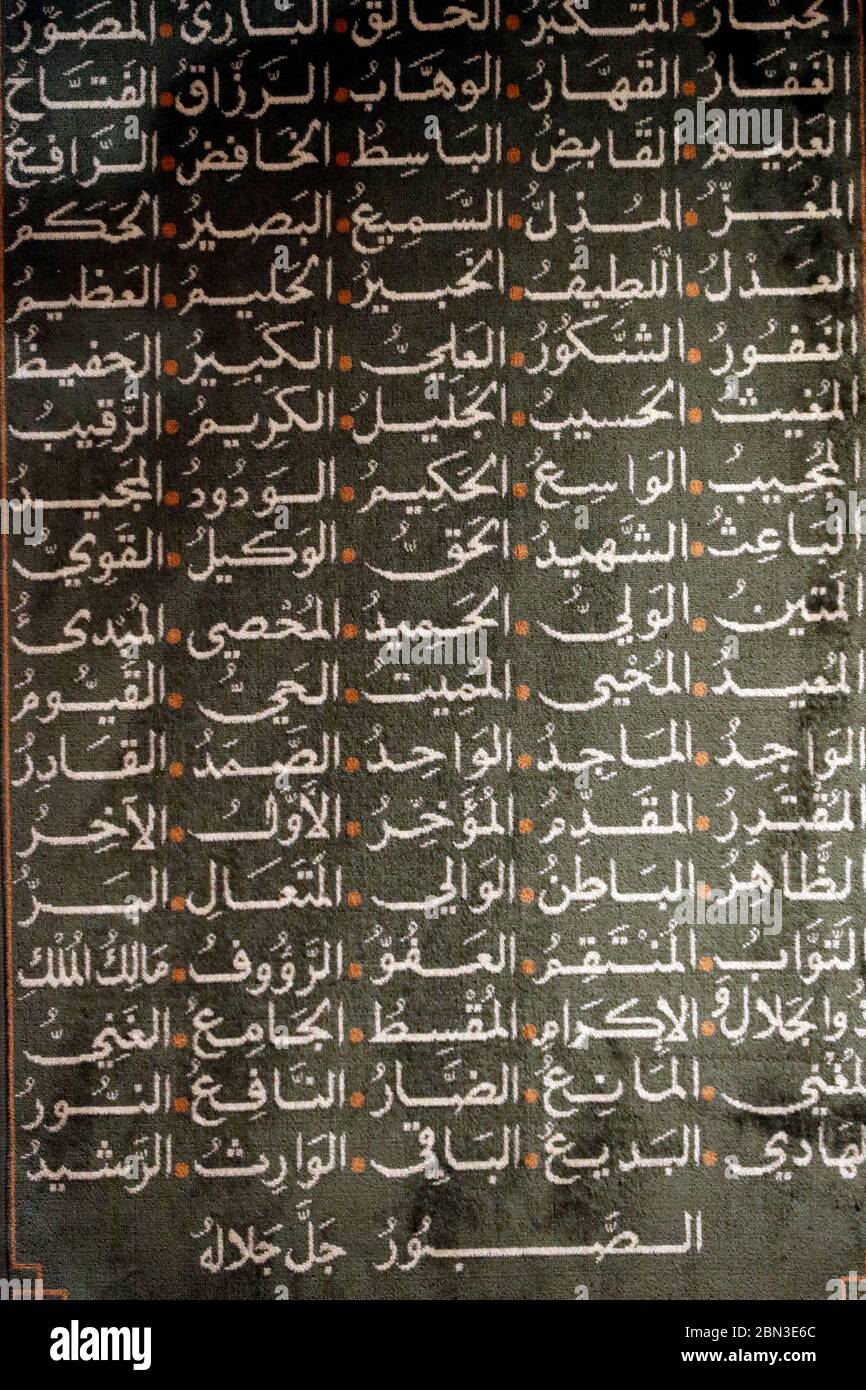 الجبَّارُ المتكبّرُ الخَالِقُ البَارِئُ المصَوِّرُ
الغَفَّارُ القَهَّارُ الوَهَّابُ الرَزَّاقُ الفَتَّاحُ
العَلِيمُ القَابِضُ البَاسِطُ الخَافِضُ الرَّافِعُ
المُعِزُّ المُذِلُّ السَّمِيعُ البَصِيرُ الحَكَمُ
العَدْلُ اللَّطِيفُ الخَبِيرُ الحَلِيمُ العَظِيمُ
الغَفُورُ الشَّكُورُ العَلِيُّ الكَبِيرُ الحَفِيظُ
المُغِيثُ الحَسِيبُ الجَلِيلُ الكَرِيمُ الرَّقِيبُ
المُجِيبُ الوَاسِعُ الحَكِيمُ الوَدُودُ المَجِيدُ
البَاعِثُ الشَّهِيدُ الحَقُّ الوَكِيلُ القَوِيُّ
المَتِينُ الوَلِيُّ الحَمِيدُ المُحْصِي المُبْدِئُ
المُعِيدُ المُحْيِي المُمِيتُ الحَيُّ القَيُّومُ
الوَاجِدُ المَاجِدُ الوَاحِدُ الصَّمَدُ القَادِرُ
المُقْتَدِرُ المُقَدِّمُ المُؤَخِّرُ الأَوَّلُ الآخِرُ
الظَّاهِرُ البَاطِنُ الوَالِي المُتَعَالِ البَرُّ
التَّوَّابُ المُنْتَقِمُ العَفُوُّ الرَّؤُوفُ مَالِكُ المُلْكِ
ذُو الجَلَالِ وَ الإكرَامِ المُقْسِطُ الجَامِعُ الغَنِيُّ
المُغْنِي المَانِعُ الضَّارُّ النَّافِعُ النُّورُ
الهَادِي البَدِيعُ البَاقِي الوَارِثُ الرَّشِيدُ
الصَّبُورُ جَلَّ جَلَالُهُ
alamy
Image ID: 2BN3E6C
www.alamy.com